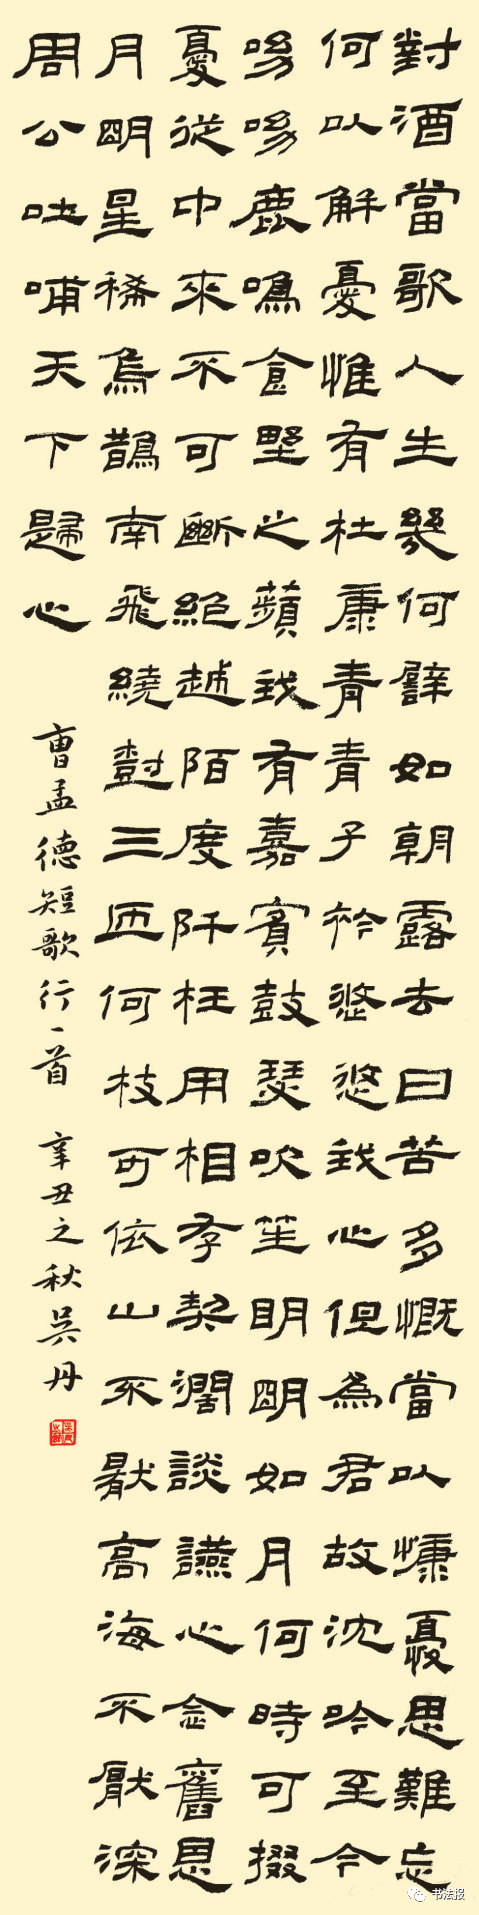 對酒當歌人生幾何譬如朝露去日苦多慨當以慷憂思難忘
何以解憂惟有杜康青青子衿悠悠我心但為君故沈吟至今
呦呦鹿鳴食野之蘋我有嘉賓鼓瑟吹笙明明如月何時可掇
憂從中來不可斷絕越陌度阡枉用相存契濶談讌心念舊恩
月明星稀烏鵲南飛繞樹三匝何枝可依山不厭高海不厭深
周公吐哺天下歸心
曹孟德短歌行一首 辛丑之秋吳丹
书法报